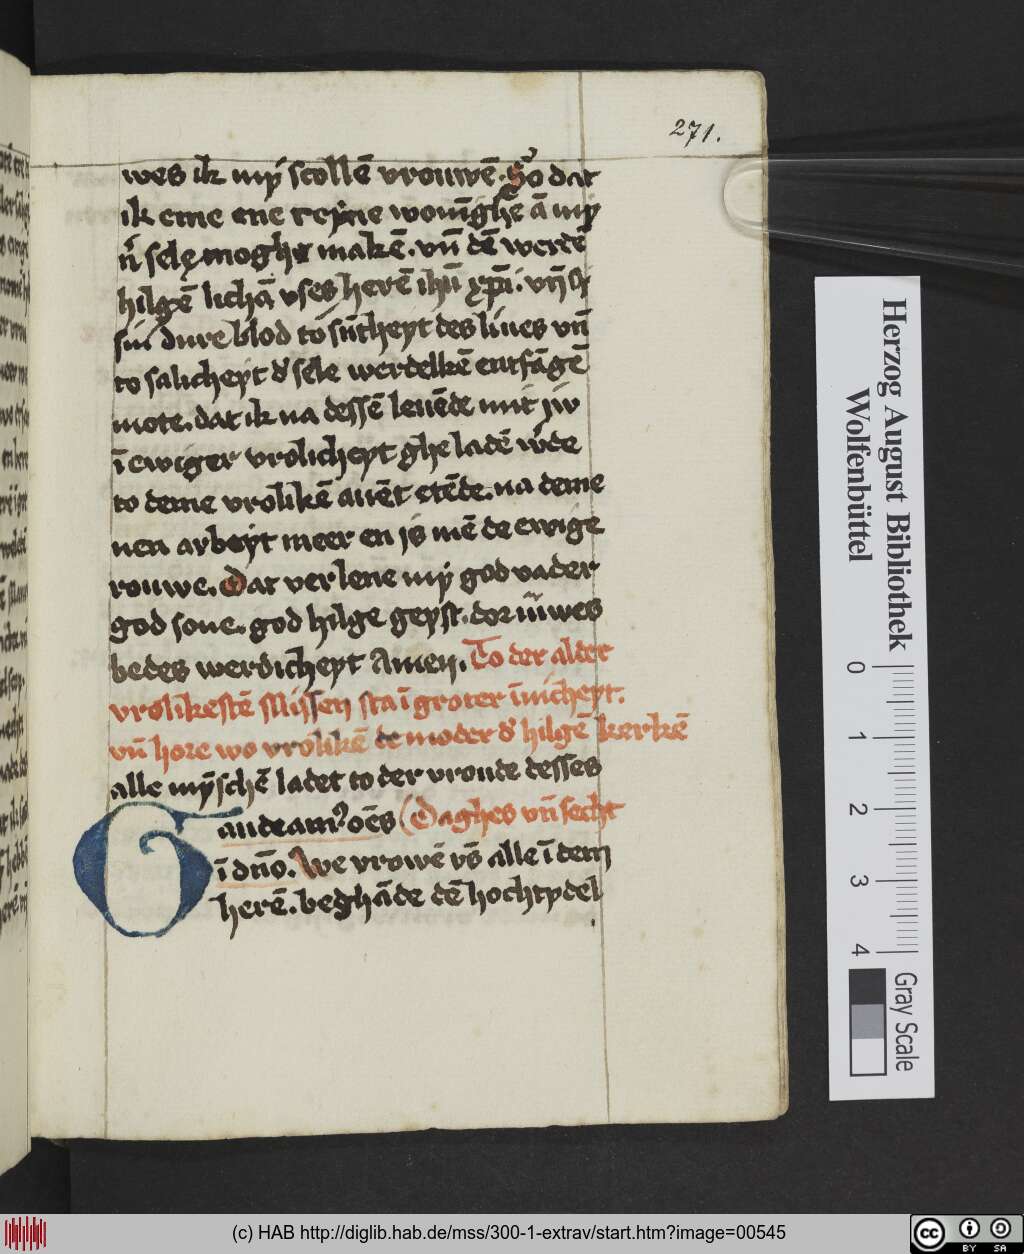 271.
wes ik mẏ scollē vrouwē. So dat
ik eme ene reẏne wonīghē ā mẏ
selę moghe makē. vn̄ dē werdē
hilgē lichā vses herē ihū xp̄i. vn̄
sin dure blod to sūtheyt des liues vn̄
to salicheyt d' sele werdelkē entfāgē
mote. dat ik na dessē leuēde mit jw
ī ewiger vrolicheyt ghe ladē w'de
to deme vrolikē auēt etēde. na deme
nen arbeyt meer en is mē de ewige
rouwe. Dat verlene mẏ god vader
god sone. god hilge geyst. dor iuwes
bedes werdicheyt Amen. To der alder
vrolikestē Missen sta ī groter īnicheyt.
vn̄ hore wo vrolikē de moder d' hilgē kerkē
alle mȳschē ladet to der vroude desses
Gaudeam9 oēs (Daghes vn̄ secht
ī dn̄o. We vrowē vs̄ alle ī dem
herē. beghāde dē hochtydel
Herzog August Bibliothek
Wolfenbüttel
0 1 2 3 4
Gray Scale
(c) HAB http://diglib.hab.de/mss/300-1-extrav/start.htm?image=00545
cc BY SA